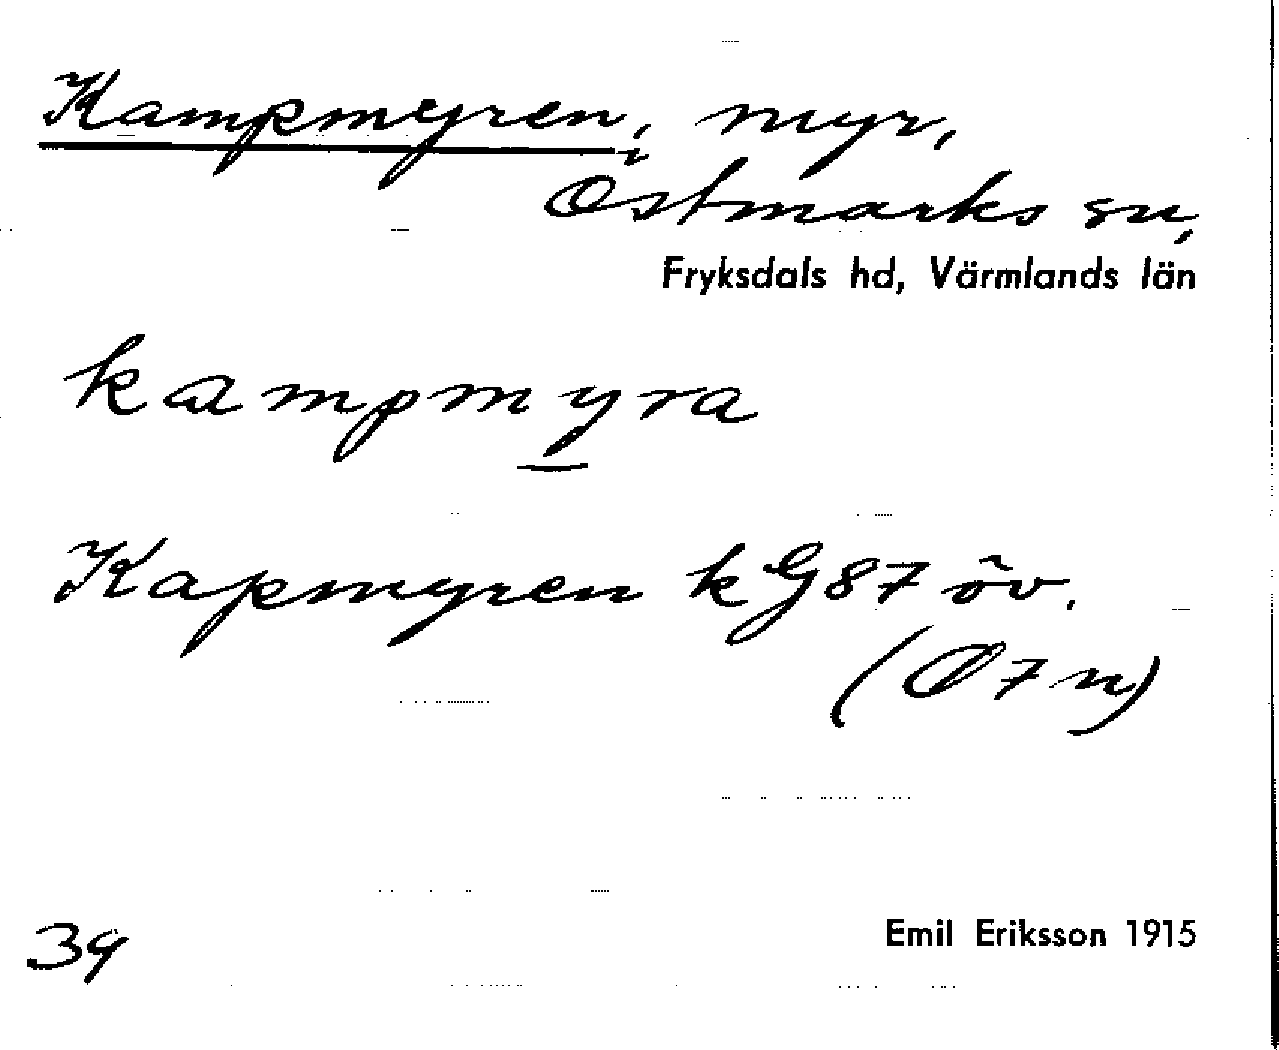 Kampmyren, myr,
Östmarks sn,
Fryksdals hd, Värmlands län
kampmyra
Kapmyren kG87 öv.
(Ø7n)
39 Emil Eriksson 1915